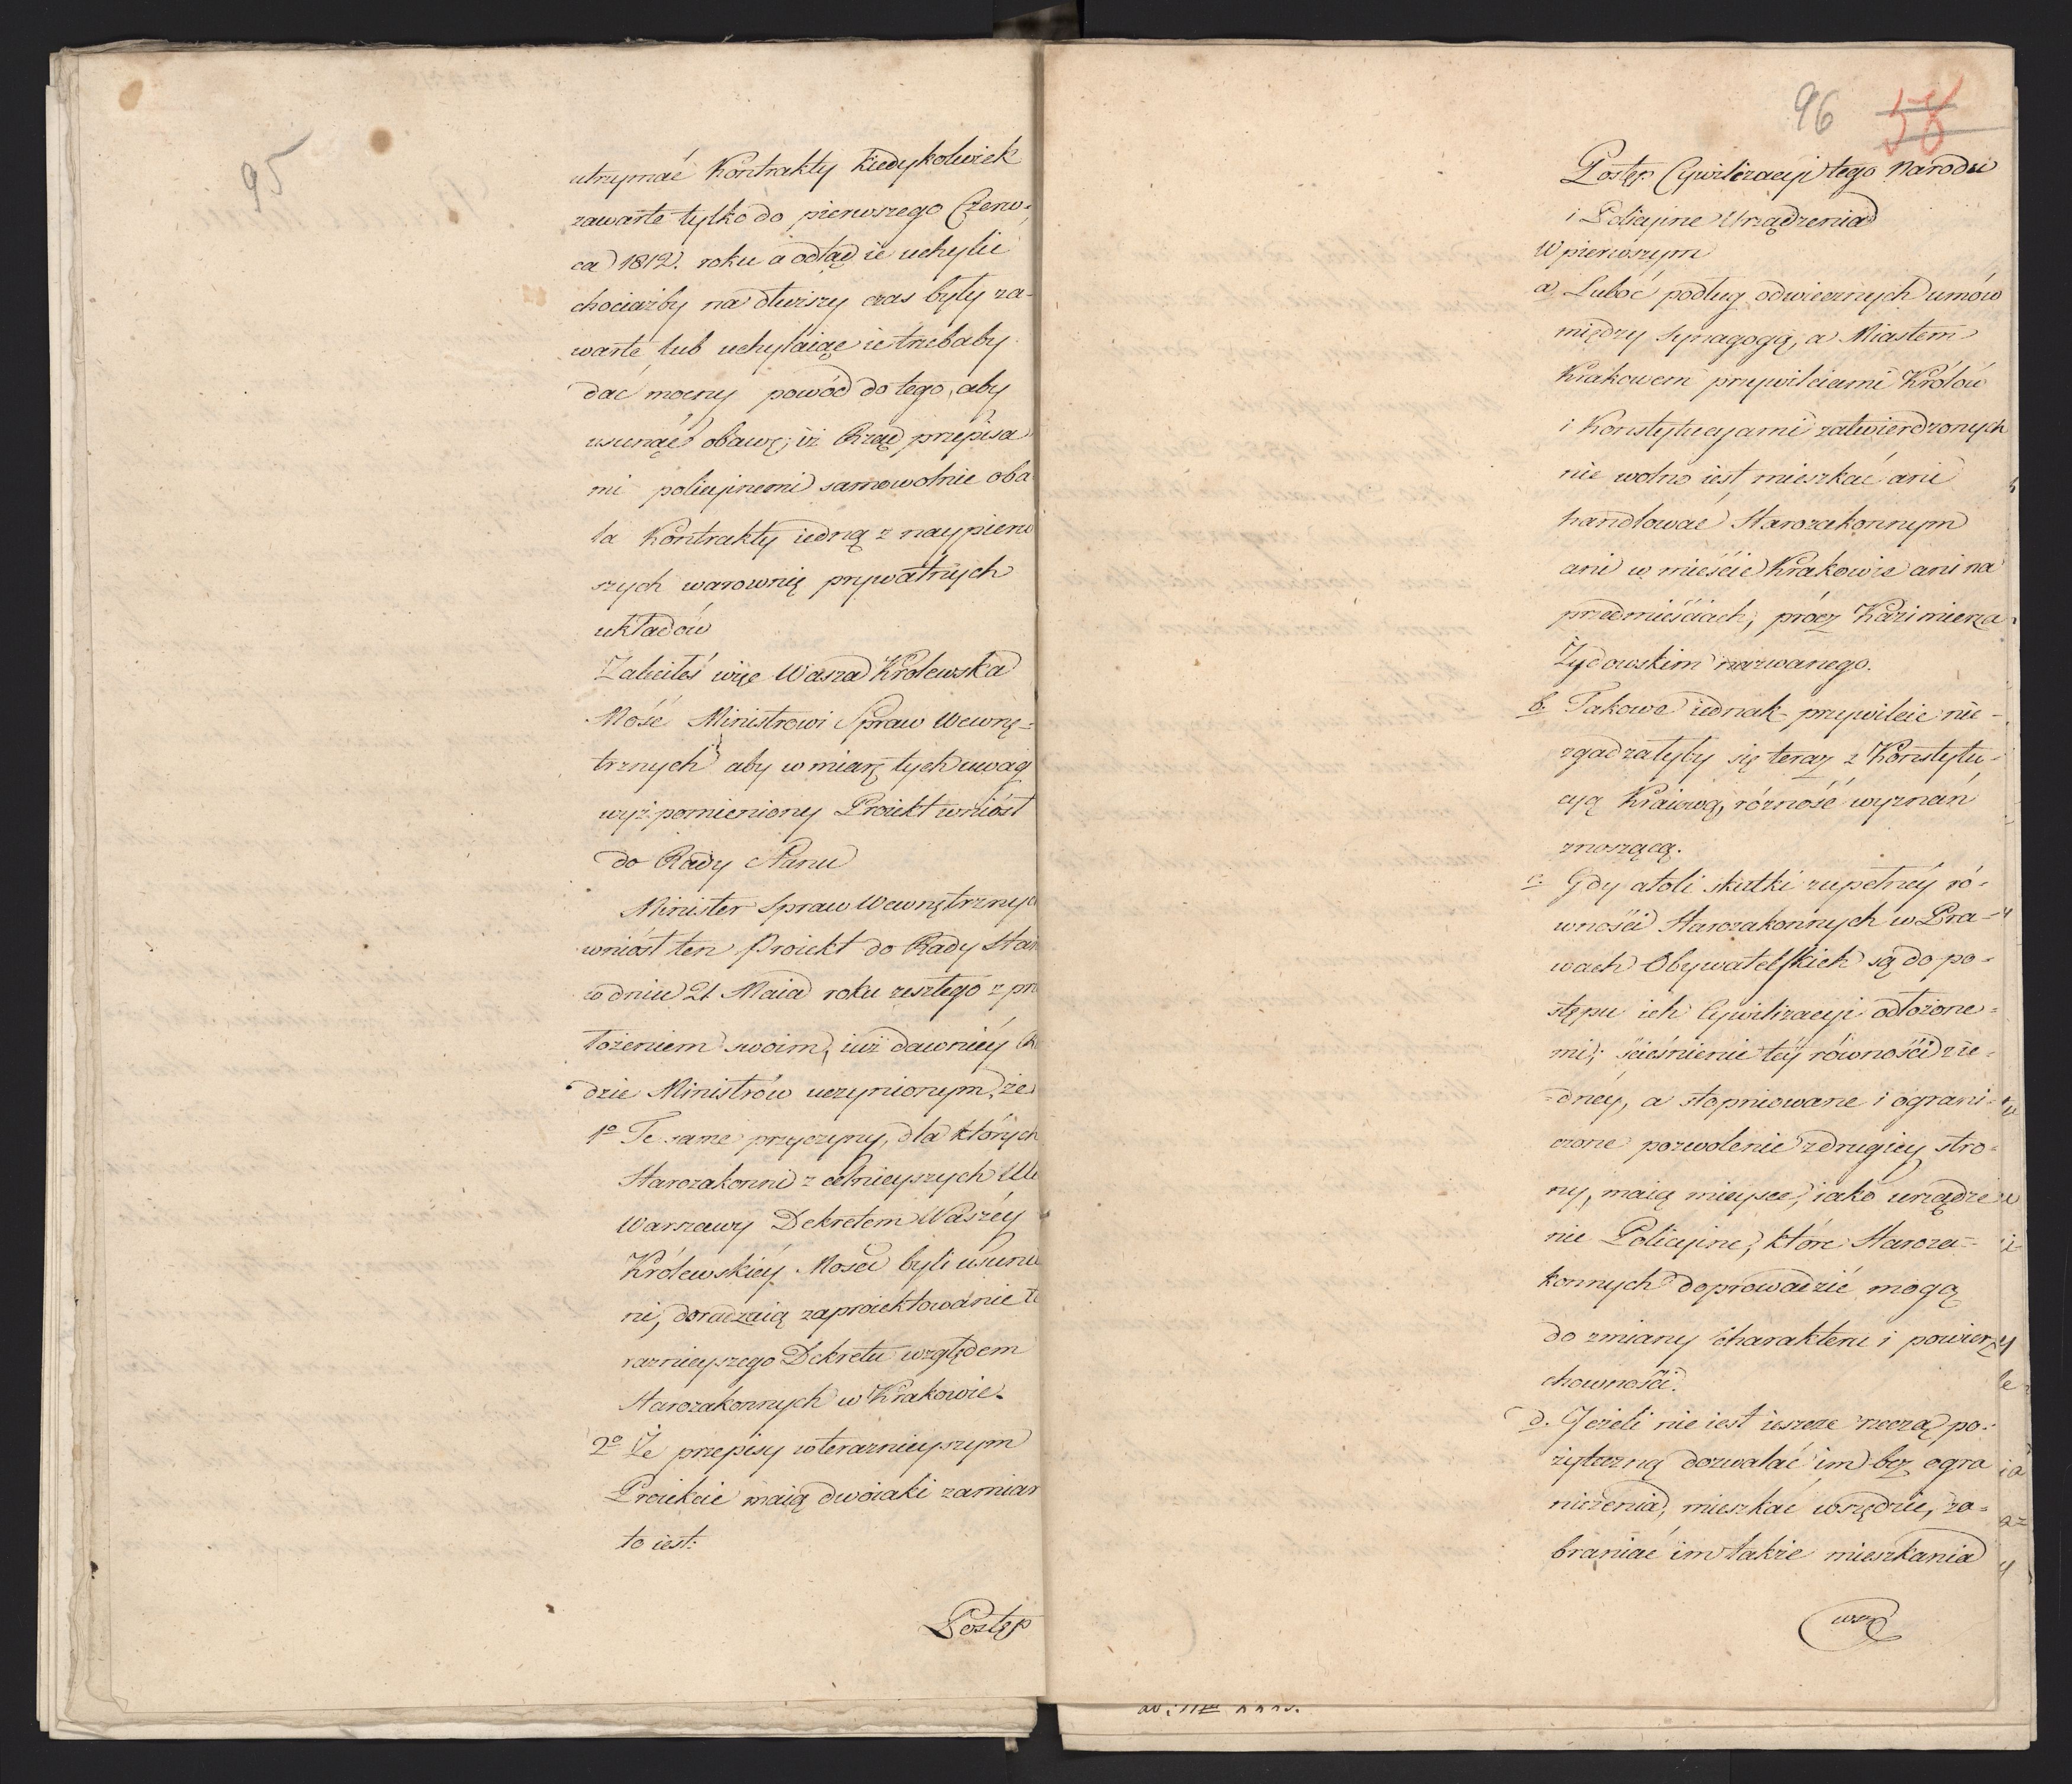 95
utrzymać Kontrakty kiedykolwiek
zawarte tylko do pierwszego Czerw-
ca 1812. roku a odtąd ie uchylić
chociażby na dłuższy czas były za-
warte lub uchylaiąc ie trzebaby
dać mocny powód do tego, aby
usunąć obawę, iż Rząd przepisa
mi policyinemi samowolnie oba
la Kontrakty iedną z naypierw
szych warownię prywatnych
układów
Zaleciłeś więc Wasza Królewska
Mość Ministrowi Spraw Wewnę=
trznych aby w miarę tych uwag
wyż pomieniony Proiekt wniósł
do Rady Stanu
Minister Spraw Wewnętrznyc
wniósł ten Proiekt do Rady Stan
w dniu 21 Maia roku zeszłego z prz
łożeniem swoim, iuż dawniéy R
dzie Ministrów uczynionym, że
1o Te same przyczyny, dla których
Starozakonni z celnieyszych Uli
Warszawy Dekretem Waszéy
Królewskiéy Mości byli usunię
ni, doradzaią zaproiektowanie te
raznieyszego Dekretu względem
Starozakonnych w Krakowie.
2o Że przepisy w teraznieyszym
Proiekcie maią dwoiaki zamiar
to iest:
Postęp
96 58
Postęp Cywilizacyi tego Narodu
i Policyine Urządzenia
W pierwszym
a, Luboć podług odwiecznych umów
między Synagogą, a Miastem
Krakowem przywileiami Królów
i Konstytucyami zatwierdzonych
nie wolno iest mieszkać ani
handlować Starozakonnym
ani w mieście Krakowie ani na
przedmieściach, prócz Kazimierza
Żydowskim nazwanego.
b. Takowe iednak przywileie nie-
zgadzałyby się teraz z Konstytu-
cyą Kraiową, różność wyznań
znoszącą.
c. Gdy atoli skutki zupełnéy ró-
wności Starozakonnych w Pra-
wach Obywatelskich są do po-
stępu ich Cywilizacyi odłożone-
mi; ścieśnienie téy równości z ie-
dnéy, a stopniowane i ograni-
czone pozwolenie z drugiey stro-
ny, maią mieysce, iako urządze
nie Policyine, które Staroza-
konnych doprowadzić mogą
do zmiany charakteru i powierz
chowności.
d. Jeżeli nie iest ieszcze rzeczą po-
żyteczną dozwalać im bez ogra
niczenia, mieszkać wszędzie, za-
braniać im także mieszkania
wszę